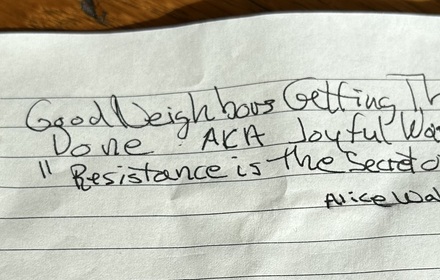 Good Neighbors Getting Th
Done AKA Joyful Wa
" Resistance is the Secret o
Alice Wal